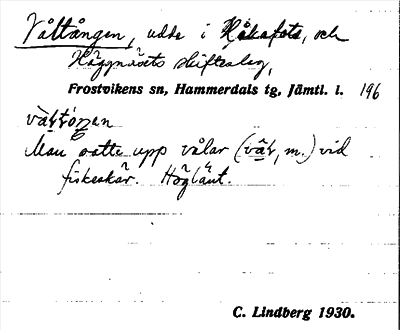 Våltången, udde i Håkafots, och
Häggnäsets skifteslag,
Frostvikens sn, Hammerdals tg, Jämtl. l. 196
Man satte upp vålar (våɫ, m.) vid
fiskeskär. Högläut.
C. Lindberg 1930.